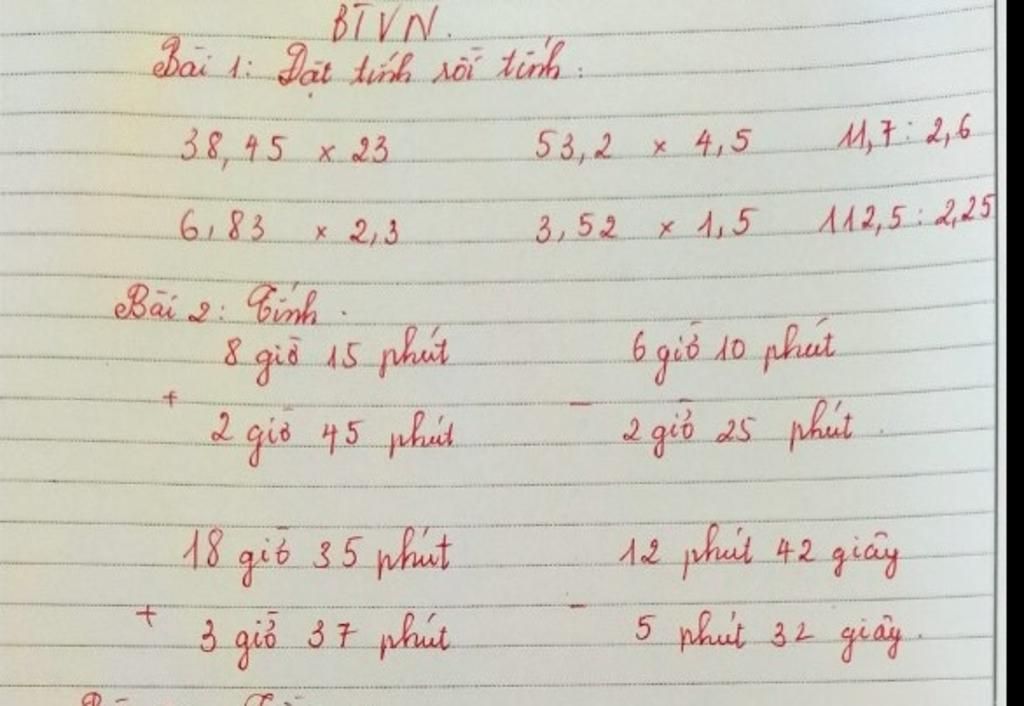 BTVN.
Bài 1: Đặt tính rồi tính:
38,45 × 23 53,2 × 4,5 11,7 : 2,6
6,83 × 2,3 3,52 × 1,5 112,5 : 2,25
Bài 2: Tính.
8 giờ 15 phút 6 giờ 10 phút
+ −
2 giờ 45 phút 2 giờ 25 phút.
18 giờ 35 phút 12 phút 42 giây
+ −
3 giờ 37 phút 5 phút 32 giây.